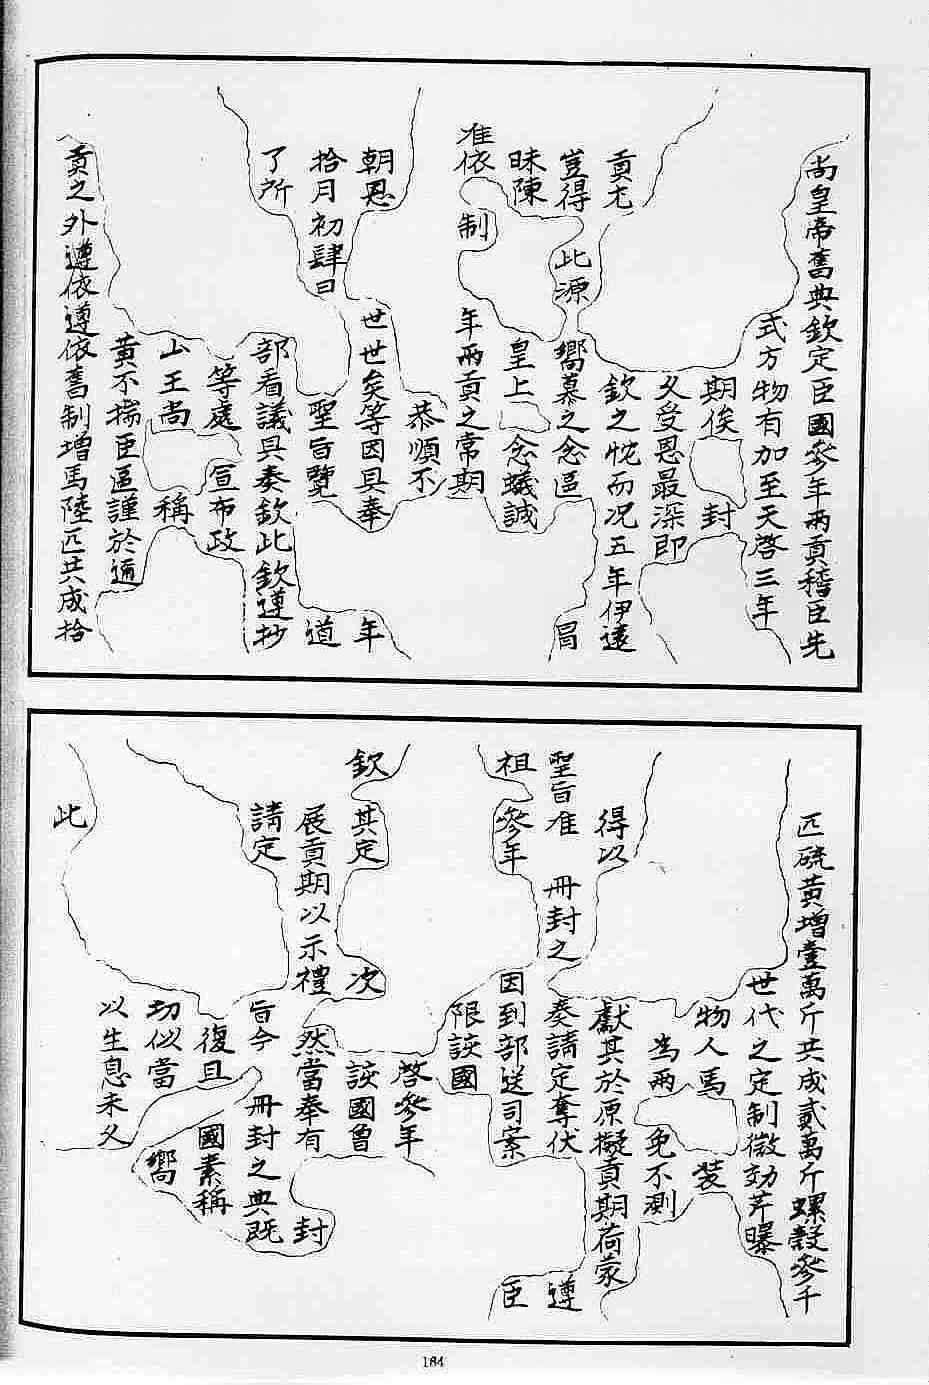 尚皇帝舊典欽定臣國參年兩貢稽臣先
式方物有加至天啓三年
期俟 封
又受恩最深即
貢尤 欽之忱而况五年伊遠
豈得 此源 嚮慕之念區 冒
昧陳 皇上 念蟻誠
准依 制 年兩貢之常期
恭順不
朝恩 世世矣等因具奉 年
拾月初肆日 聖旨覽 道
了所 部看議具奏欽此欽遵抄
等處 宣布政
山王尚 稱
黄不揣臣區謹於通
貢之外遵依遵依舊制增馬陸匹共成拾
匹硫黄增壹萬斤共成貳萬斤螺殼參千
世代之定制微効芹曝
物人馬 裝
為兩 免不測
得以 獻其於原擬貢期荷蒙
聖旨准 冊封之 奏請定奪伏 遵
祖參年 因到部送司案 臣
限該國
啓參年
欽 其定 次 該國曾
展貢期以示禮 然當奉有 封
請定 旨今 冊封之典既
復且 國素稱
切似當 嚮
以生息未乂
此
184